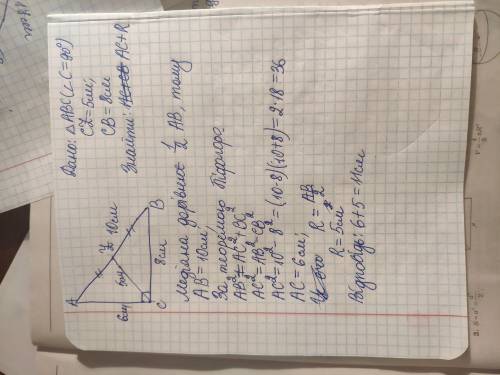 Дано: △ABC(∠C=90°)
CZ=5см;
CB=8см
Знайти: AC+R
A
Z
10см
B
5см
6см
8см
C
Медіана дорівнює 1/2 AB, тому
AB=10см;
За теоремою Піфагора
AB²=AC²+BC²
AC²=AB²-CB²
AC²=10²-8²=(10-8)(10+8)=2·18=36
AC=6см;
R=AB/2
R=5см
Відповідь: 6+5=11см